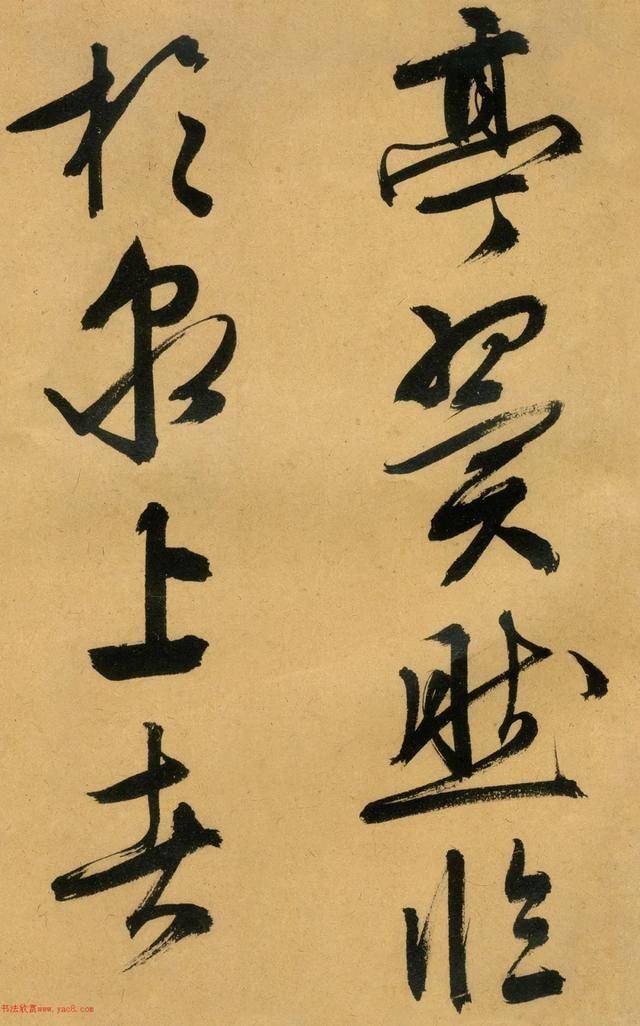 亭翼然临
於泉上者
书法欣赏www.yac8.com